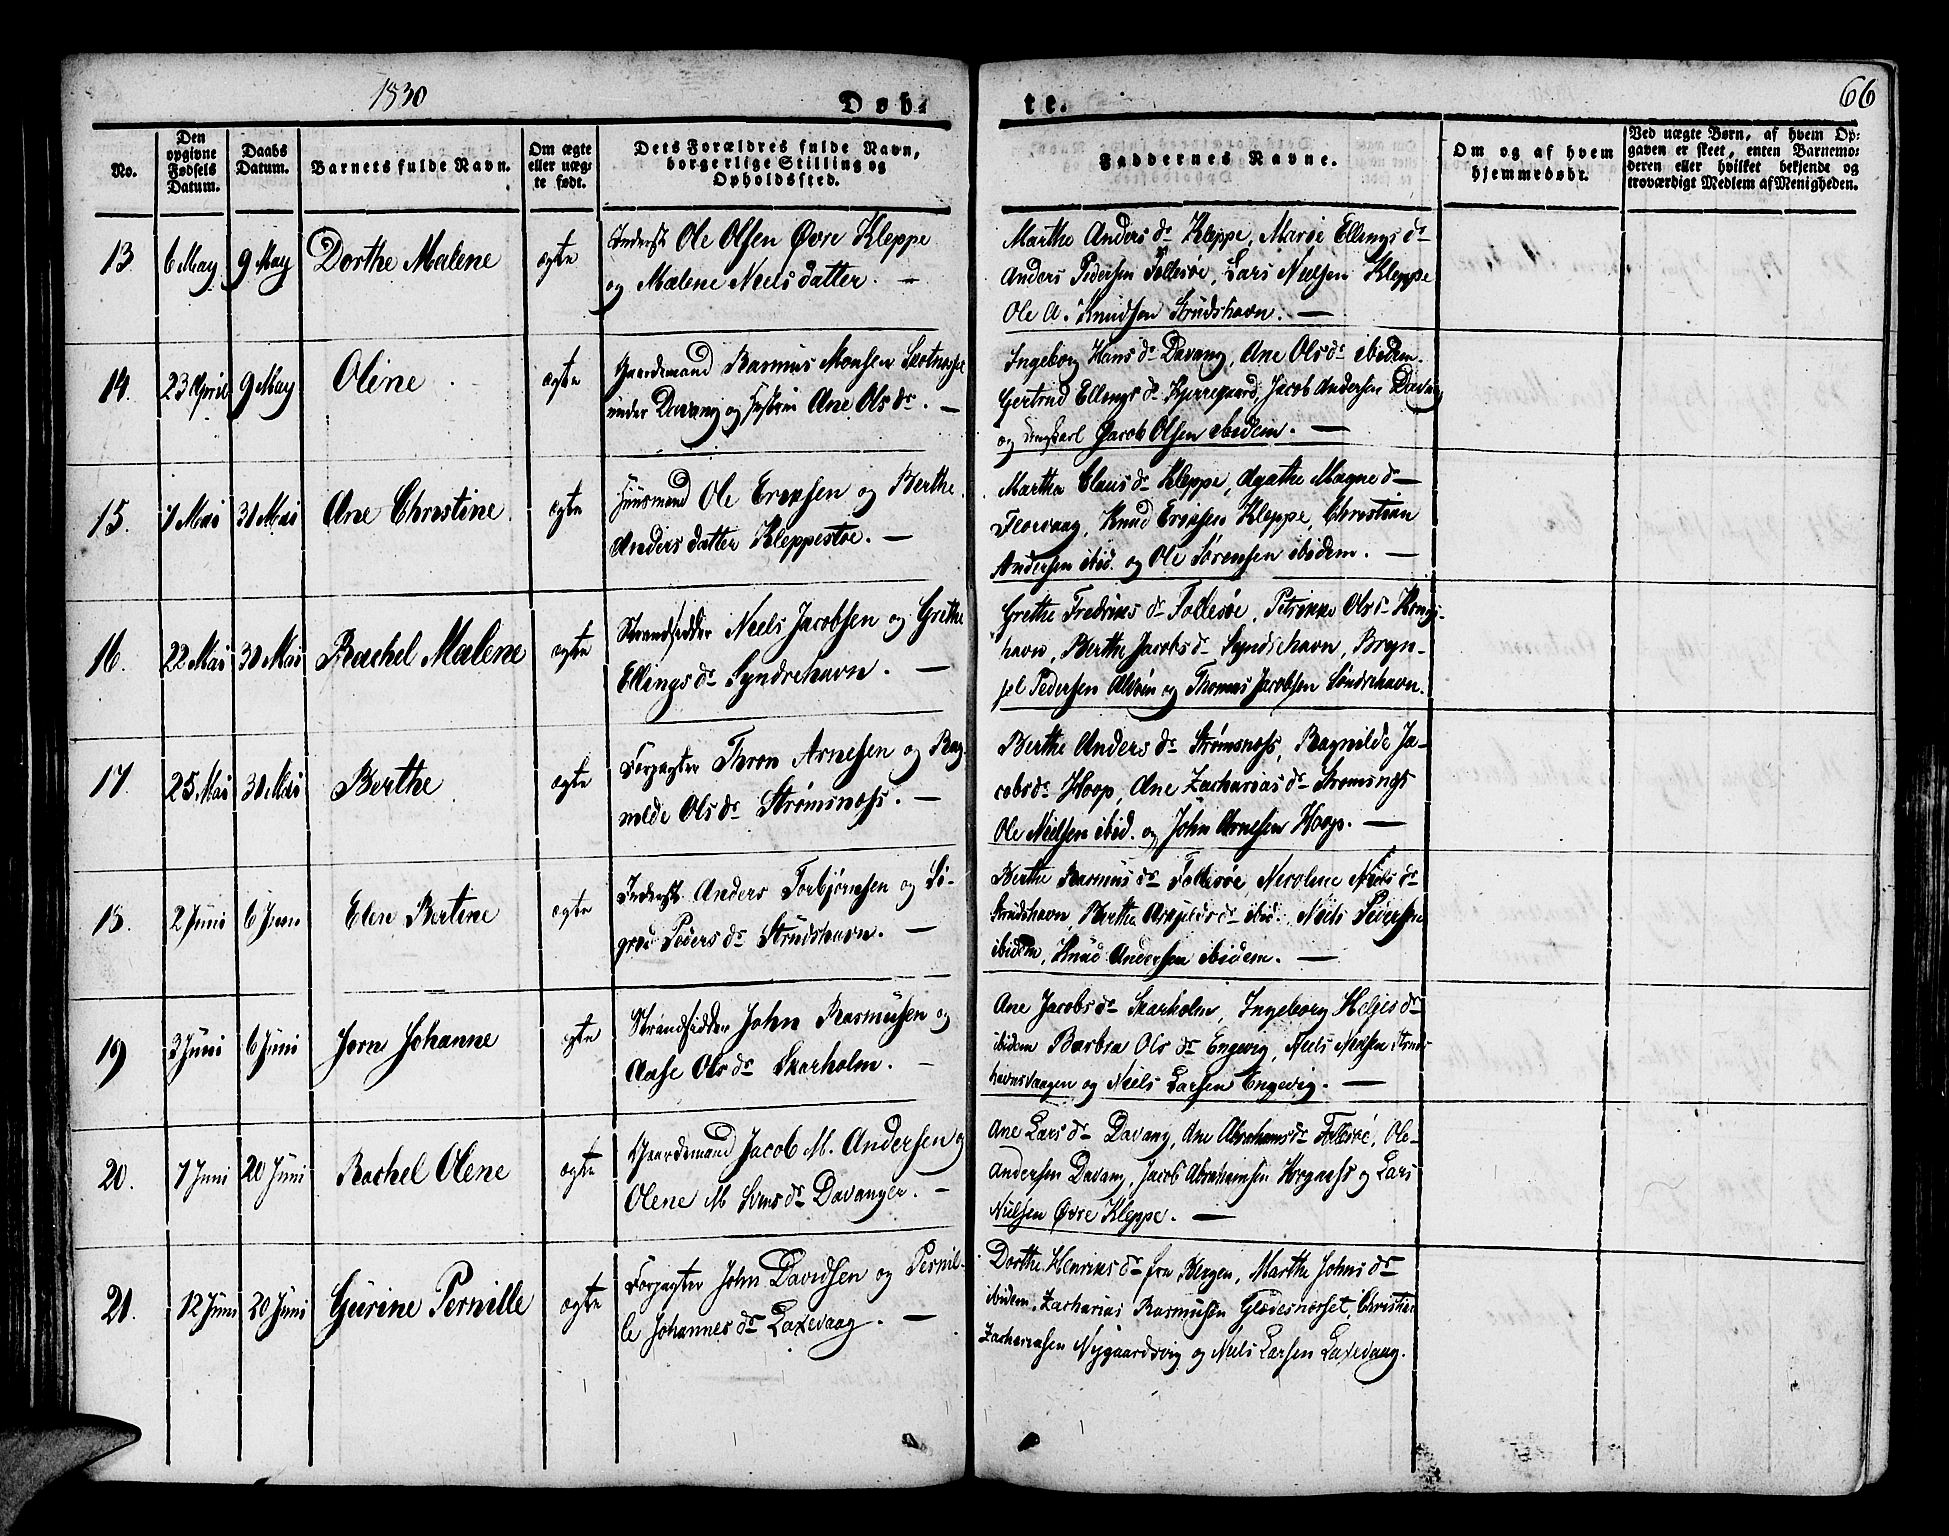 1830
Døb-
te.
66
No.
Den
opgivne
Fødsels
Datum.
Daabs
Datum.
Barnets fulde Navn.
Om ægte
eller uæg-
te født.
Dets Forældres fulde Navn,
borgerlige Stilling og
Opholdssted.
Faddernes Navne.
Om og af hvem
hjemmedøbt.
Ved uægte Børn, af hvem Op-
gaven er skeet, enten Barnemo-
deren eller hvilket bekjende og
troværdigt Medlem af Menigheden.
13. 6 May 9 May Dorthe Malene ægte
Inderst Ole Olsen Øvre Kleppe
og Malene Neels datter. —
Marthe Anders dr Kleppe, Marie Ellings dr
Anders Pedersen Follesøe, Lars Nielsen Kleppe
Ole A. Knudsen Strudshavn. —
14. 23 April 9 May Oline ægte
Gaardmand Rasmus Monsen
under Davang og Hustru Ane Ols dr. —
Ingeborg Hans dr Davang, Ane Ols dr ibidem.
Gertrud Ellings dr Kjerregaard, Jacob Andersen Davang
og Ungkarl Jacob Olsen ibidem. —
15. 7 Mai 31 Mai Ane Christine ægte
Huusmand Ole Ericksen og Berthe
Anders datter Kleppestøe. —
Martha Claus dr Kleppe, Agathe Magne dr
Florvaag, Knud Ericksen Kleppe, Christian
Andersen ibid. og Ole Sørensen ibidem. —
16. 22 Mai 30 Mai Rachel Malene ægte
Strandsidder Neels Jacobsen og Grethe
Ellings dr Syndrehavn. —
Grethe Fredriks dr Follesøe, Petrikke Ols dr Kongs-
havn, Berthe Jacobs dr Syndrehavn, Bryn-
jel Pedersen Alvøen og Thomas Jacobsen Søndrehavn.
17. 25 Mai 30 Mai Berthe ægte
Forpagter Thron Arnesen og Rag-
nilde Ols dr Strømsnæss. —
Berthe Anders dr Strømsnæss, Ragnilde Ja-
cobs dr Hoop, Ane Zacharias dr Strømsnæs
Ole Nielsen ibid. og John Arnesen Hoop. —
18. 2 Juni 6 Juni Elen Bertine ægte
Inderst Anders Torbjørnsen og Si-
gred Peders dr Strudshavn. —
Berthe Rasmus dr Follesøe Nicoline Niels dr
Strudshavn, Berthe dr ibid. Neils Pedersen
ibidem, Knud Andersen ibidem. —
19 3 Juni 6 Juni Jorn Johanne ægte
Strandsidder John Rasmusen og
Aase Ols dr Skarholm. —
Ane Jacobs dr Skarholm, Ingeborg Helges dr
ibidem Barbra Ols dr Engevig, Niels Nielsen Struds-
havnsvaagen og Niels Larsen Engevig. —
20. 7 Juni 20 Juni Rachel Olene ægte
Gaardemand Jacob M. Andersen og
Olene M. Svens dr Davanger. —
Ane Lars dr Davang, Ane Abrahams dr Follesøe, Ole
Andersen Davang, Jacob Abrahamsen Hognæss og Lars
Nielsen Øvre Kleppe. —
21. 12 Juni 20 Juni Gurine Pernille ægte
Forpagter John Davidsen og Pernil-
le Johannes dr Laxevaag. —
Dorthe Henriks dr fra Bergen, Marthe Johns dr
ibidem, Zacharias Rasmusen Gledesnæsset, Christian
Zachariasen Nygaardsvig og Niels Larsen Laxevaag.